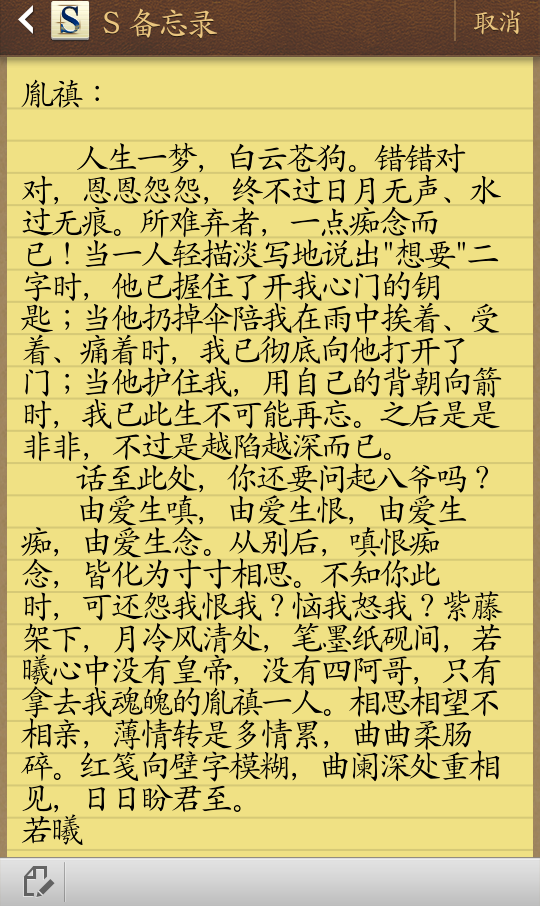 S 备忘录
取消
胤禛：
人生一梦，白云苍狗。错错对
对，恩恩怨怨，终不过日月无声、水
过无痕。所难弃者，一点痴念而
已！当一人轻描淡写地说出"想要"二
字时，他已握住了开我心门的钥
匙；当他扔掉伞陪我在雨中挨着、受
着、痛着时，我已彻底向他打开了
门；当他护住我，用自己的背朝向箭
时，我已此生不可能再忘。之后是是
非非，不过是越陷越深而已。
话至此处，你还要问起八爷吗？
由爱生嗔，由爱生恨，由爱生
痴，由爱生念。从别后，嗔恨痴
念，皆化为寸寸相思。不知你此
时，可还怨我恨我？恼我怒我？紫藤
架下，月冷风清处，笔墨纸砚间，若
曦心中没有皇帝，没有四阿哥，只有
拿去我魂魄的胤禛一人。相思相望不
相亲，薄情转是多情累，曲曲柔肠
碎。红笺向壁字模糊，曲阑深处重相
见，日日盼君至。
若曦